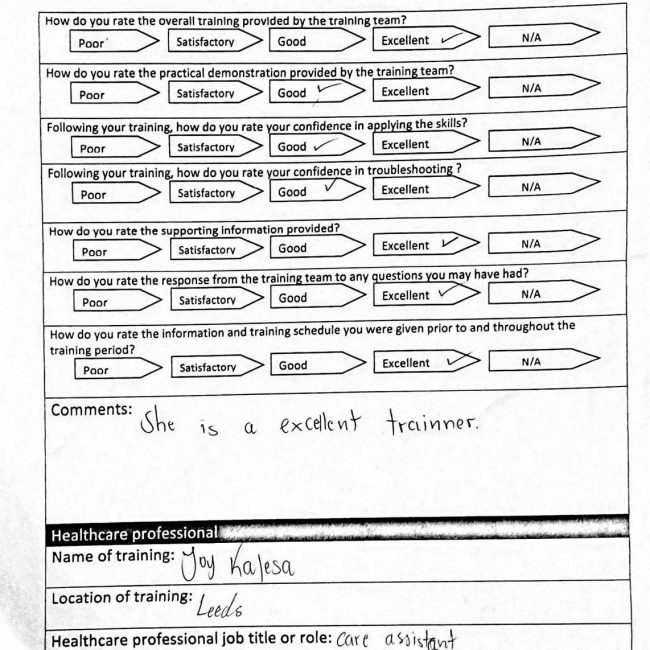 How do you rate the overall training provided by the training team?
Poor Satisfactory Good Excellent ✓ N/A
How do you rate the practical demonstration provided by the training team?
Poor Satisfactory Good ✓ Excellent N/A
Following your training, how do you rate your confidence in applying the skills?
Poor Satisfactory Good ✓ Excellent N/A
Following your training, how do you rate your confidence in troubleshooting ?
Poor Satisfactory Good ✓ Excellent N/A
How do you rate the supporting information provided?
Poor Satisfactory Good Excellent ✓ N/A
How do you rate the response from the training team to any questions you may have had?
Poor Satisfactory Good Excellent ✓ N/A
How do you rate the information and training schedule you were given prior to and throughout the
training period?
Poor Satisfactory Good Excellent ✓ N/A
Comments: She is a excellent trainner.
Healthcare professional
Name of training: Joy Kalesa
Location of training: Leeds
Healthcare professional job title or role: Care assistant